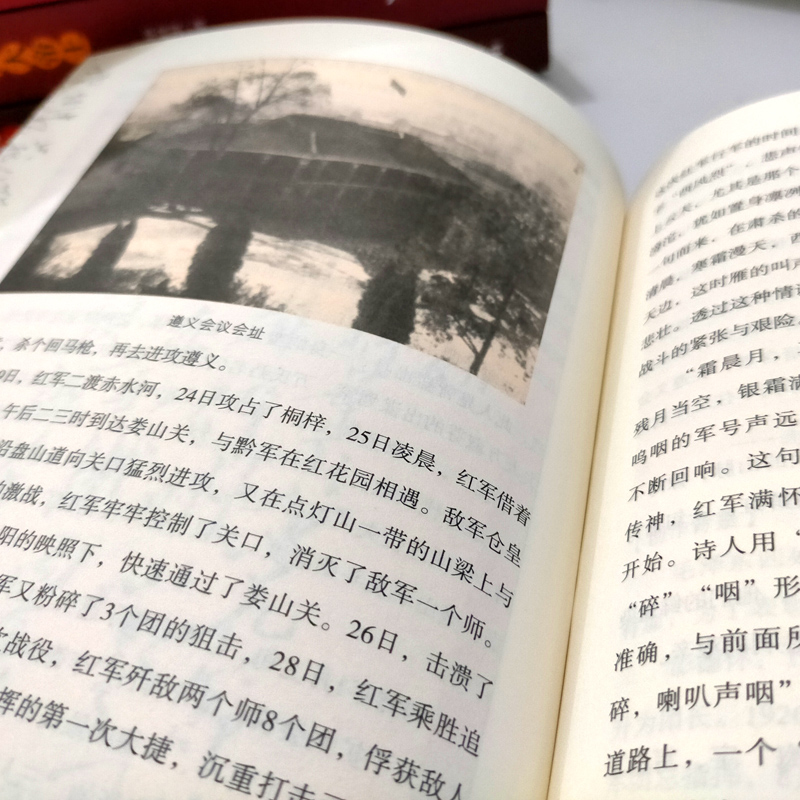 遵义会议会址
，杀个回马枪，再去进攻遵义。
9日，红军二渡赤水河，24日攻占了桐梓，25日凌晨，红军借着
午后二三时到达娄山关，与黔军在红花园相遇。敌军仓皇
沿盘山道向关口猛烈进攻，又在点灯山一带的山梁上与
激战，红军牢牢控制了关口，消灭了敌军一个师。
阳的映照下，快速通过了娄山关。26日，击溃了
军又粉碎了3个团的狙击，28日，红军乘胜追
战役，红军歼敌两个师8个团，俘获敌人
挥的第一次大捷，沉重打击
军行军的时间
”，悲声
天，尤其是那个
，犹如置身
一句而来，在肃杀的
清晨，寒霜漫天，西
天边，这时雁的叫声
悲壮。透过这种情
战斗的紧张与艰险，
“霜晨月，
残月当空，银霜满
呜咽的军号声远
不断回响。这句
传神，红军满怀
开始。诗人用“
“碎”“咽”形
准确，与前面所
碎，喇叭声咽”
道路上，一个“